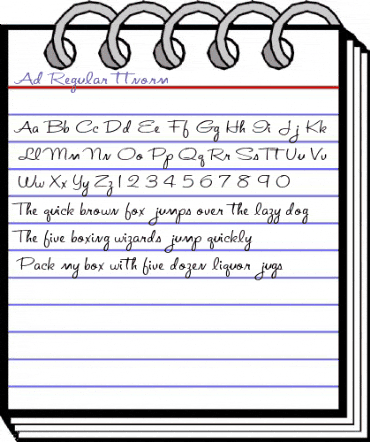 Ad Regular TTnorm
Aa Bb Cc Dd Ee Ff Gg Hh Ii Jj Kk
Ll Mm Nn Oo Pp Qq Rr Ss Tt Uu Vv
Ww Xx Yy Zz 1 2 3 4 5 6 7 8 9 0
The quick brown fox jumps over the lazy dog
The five boxing wizards jump quickly
Pack my box with five dozen liquor jugs